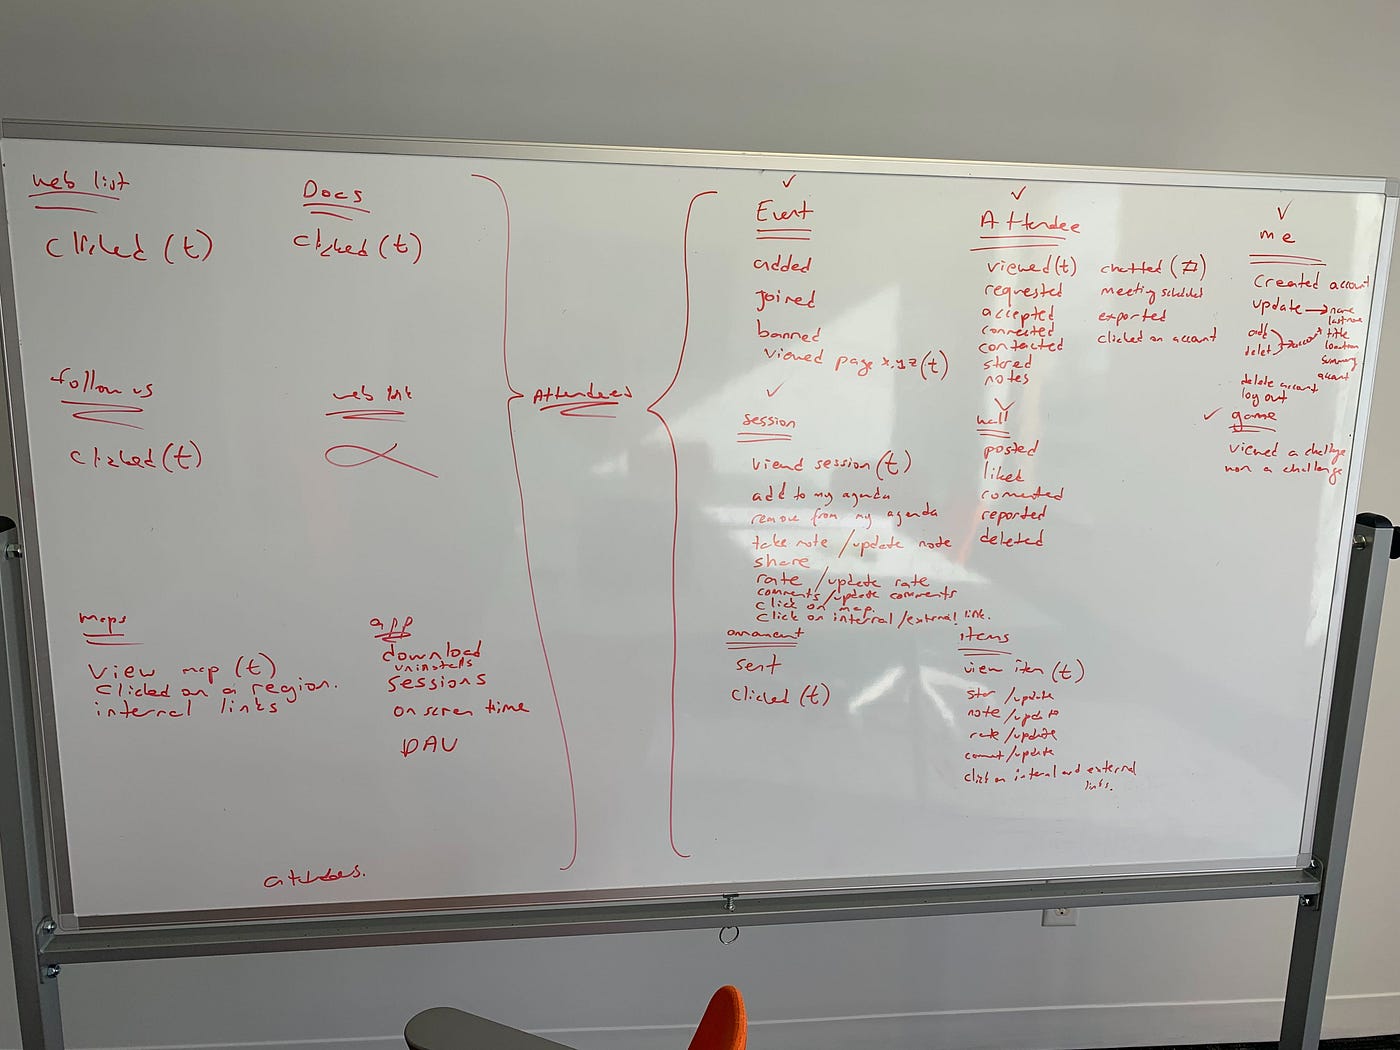 web list
clicked (t)
Docs
clicked (t)
follow us
clicked (t)
web link
maps
view map (t)
clicked on a region.
internal links
app
download
uninstalls
sessions
on scren time
DAU
Attendees
✓
Event
added
joined
banned
viewed page x,y,z (t)
✓
session
viewd session (t)
add to my agenda
remove from my agenda
take note / update note
share
rate / update rate
comments / update comments
click on map.
click on internal / external link.
sent
clicked (t)
✓
Attendee
viewed (t)
requested
accepted
connected
contacted
stared
notes
chatted (#)
meeting scheduled
exported
clicked on account
✓
wall
posted
liked
comented
reported
deleted
items
view item (t)
star / update
note / update
rate / update
coment / update
click on internal and external
links.
✓
me
Created account
update → name
last name
add
delet
title
location
summary
delete account
log out
✓ game
viewed a challenge
won a challenge